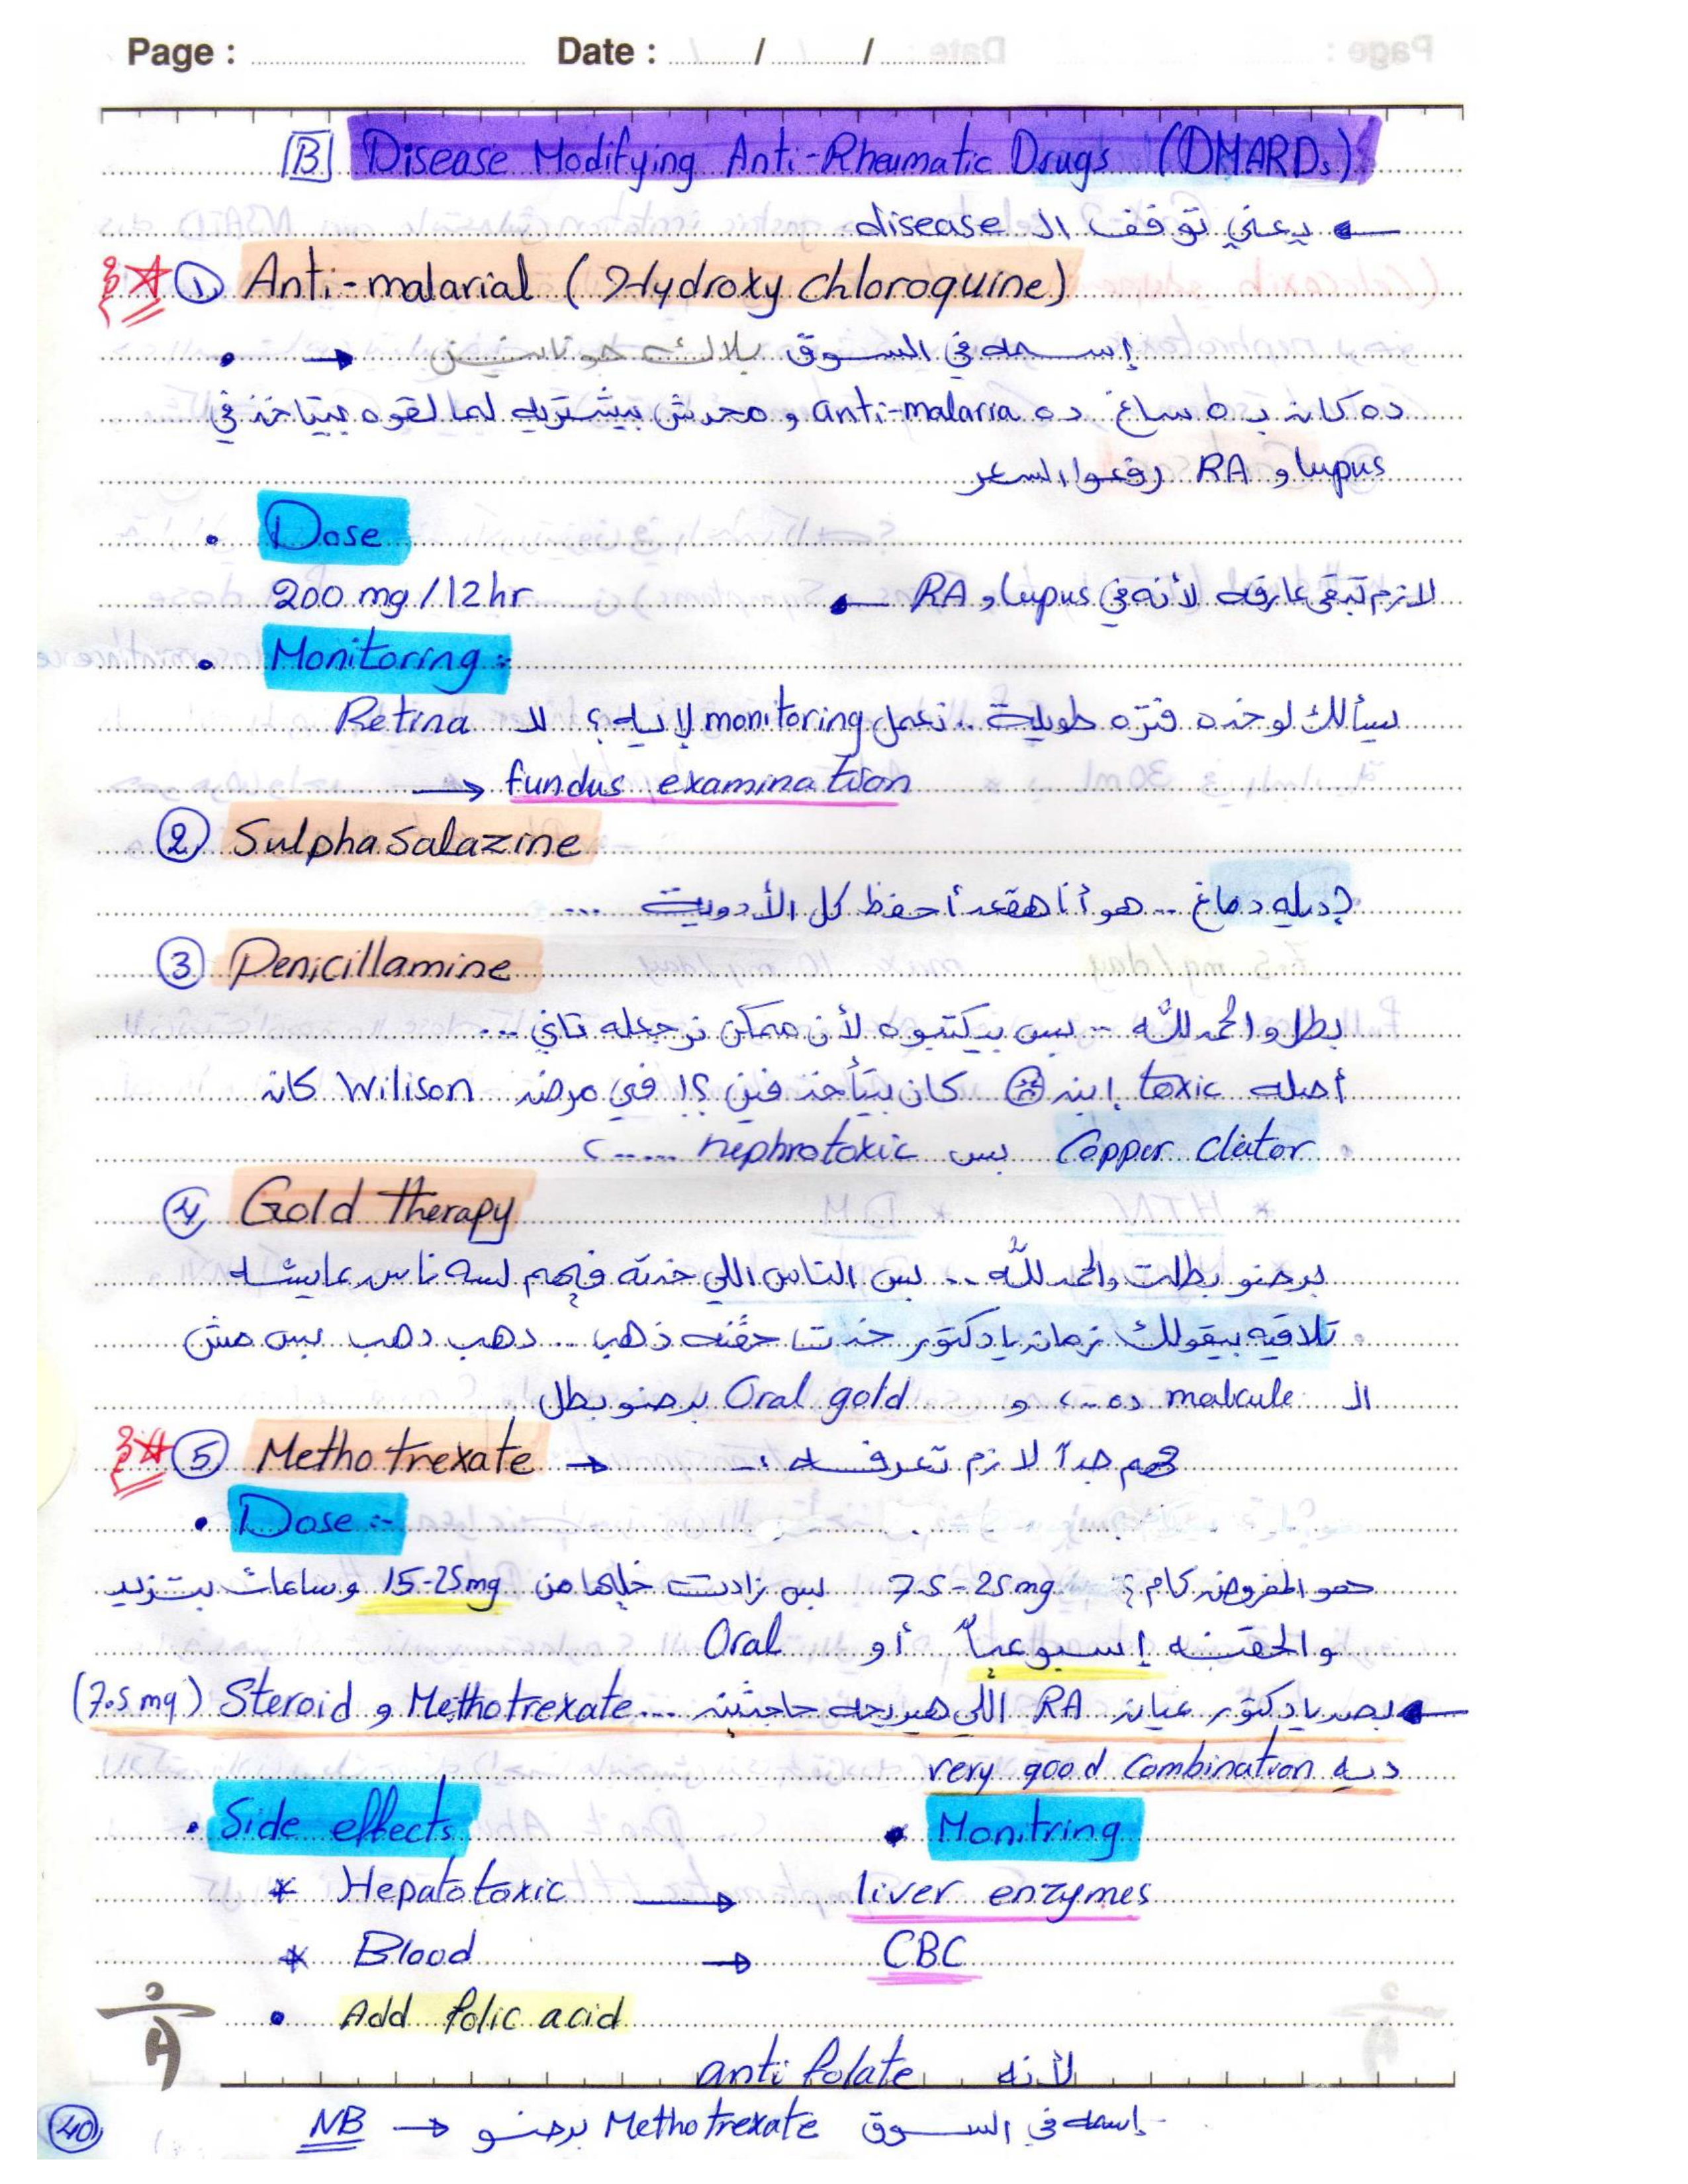 Page : Date : / /
B Disease Modifying Anti-Rheumatic Drugs (DMARDs)
يعني توقف ال disease
① Anti-malarial (Hydroxy chloroquine)
إسمه في السوق
ده كان ب ٥ ساغ ده anti-malaria و محدش بيشتريه لما لقوه بيتاخد في
lupus و RA رفعوا السعر
• Dose
200 mg/12hr لازم تبقى عارفه لأنه في lupus و RA
• Monitoring :-
يسألك لو خده فتره طويلة .. نعمل monitoring لإيه؟ لل Retina
→ fundus examination
② Sulphasalazine
دماغ .. هو أنا هقعد أحفظ كل الأدوية ...
③ Penicillamine
بطل والحمد لله .. بس بيكتبوه لأن ممكن نرجعله تاني ...
أصله toxic كان بيتأخد فين ؟! في مرض Wilison كان
Copper cleator بس nephrotoxic
④ Gold therapy
برضو بطلت والحمد لله .. بس الناس اللي خدته فيهم لسه ناس عايشه
تلاقيه بيقولك زمان يا دكتور خدت حقنه ذهب ... دهب دهب بس مش
ال malcule ده و Oral gold برضو بطل
⑤ Methotrexate → مهم جداً لازم تعرفه
• Dose :-
هو المفروض كام؟ 7.5-25mg بس زادت خليها من 15-25mg وساعات بتزيد
والحقنه إسبوعياً أو Oral
بص يا دكتور عيان RA اللي هيريحه حاجتين ... Methotrexate و Steroid (7.5 mg)
ديه very good combination
• Side effects • Monitring
* Hepatotoxic → liver enzymes
* Blood → CBC
• Add folic acid
لأنه anti folate
NB → إسمه في السوق Methotrexate برضو
40